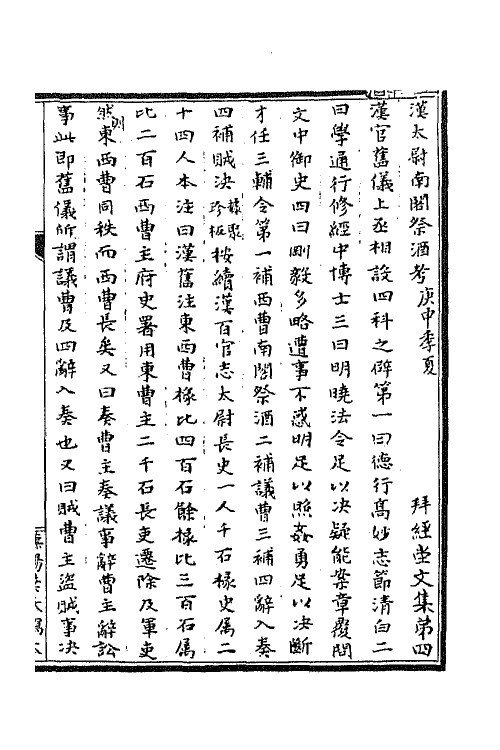 漢太尉南閣祭酒考庚申季夏　拜經堂文集第四
漢官舊儀上丞相設四科之辟第一曰德行高妙志節清白二
曰學通行修經中博士三曰明曉法令足以决疑能案章覆問
文中御史四曰剛毅多略遭事不惑明足以照姦勇足以决斷
才任三輔令第一補西曹南閣祭酒二補議曹三補四辭入奏
四補賊决據聚珍板按續漢百官志太尉長史一人千石椽史属二
十四人本注曰漢舊注東西曹椽比四百石餘椽比三百石属
比二百石西曹主府史署用東曹主二千石長吏遷除及軍吏
然則東西曹同秩而西曹長矣又曰奏曹主奏議事辭曹主辭訟
事此即舊儀所謂議曹及四辭入奏也又曰賊曹主盜賊事决